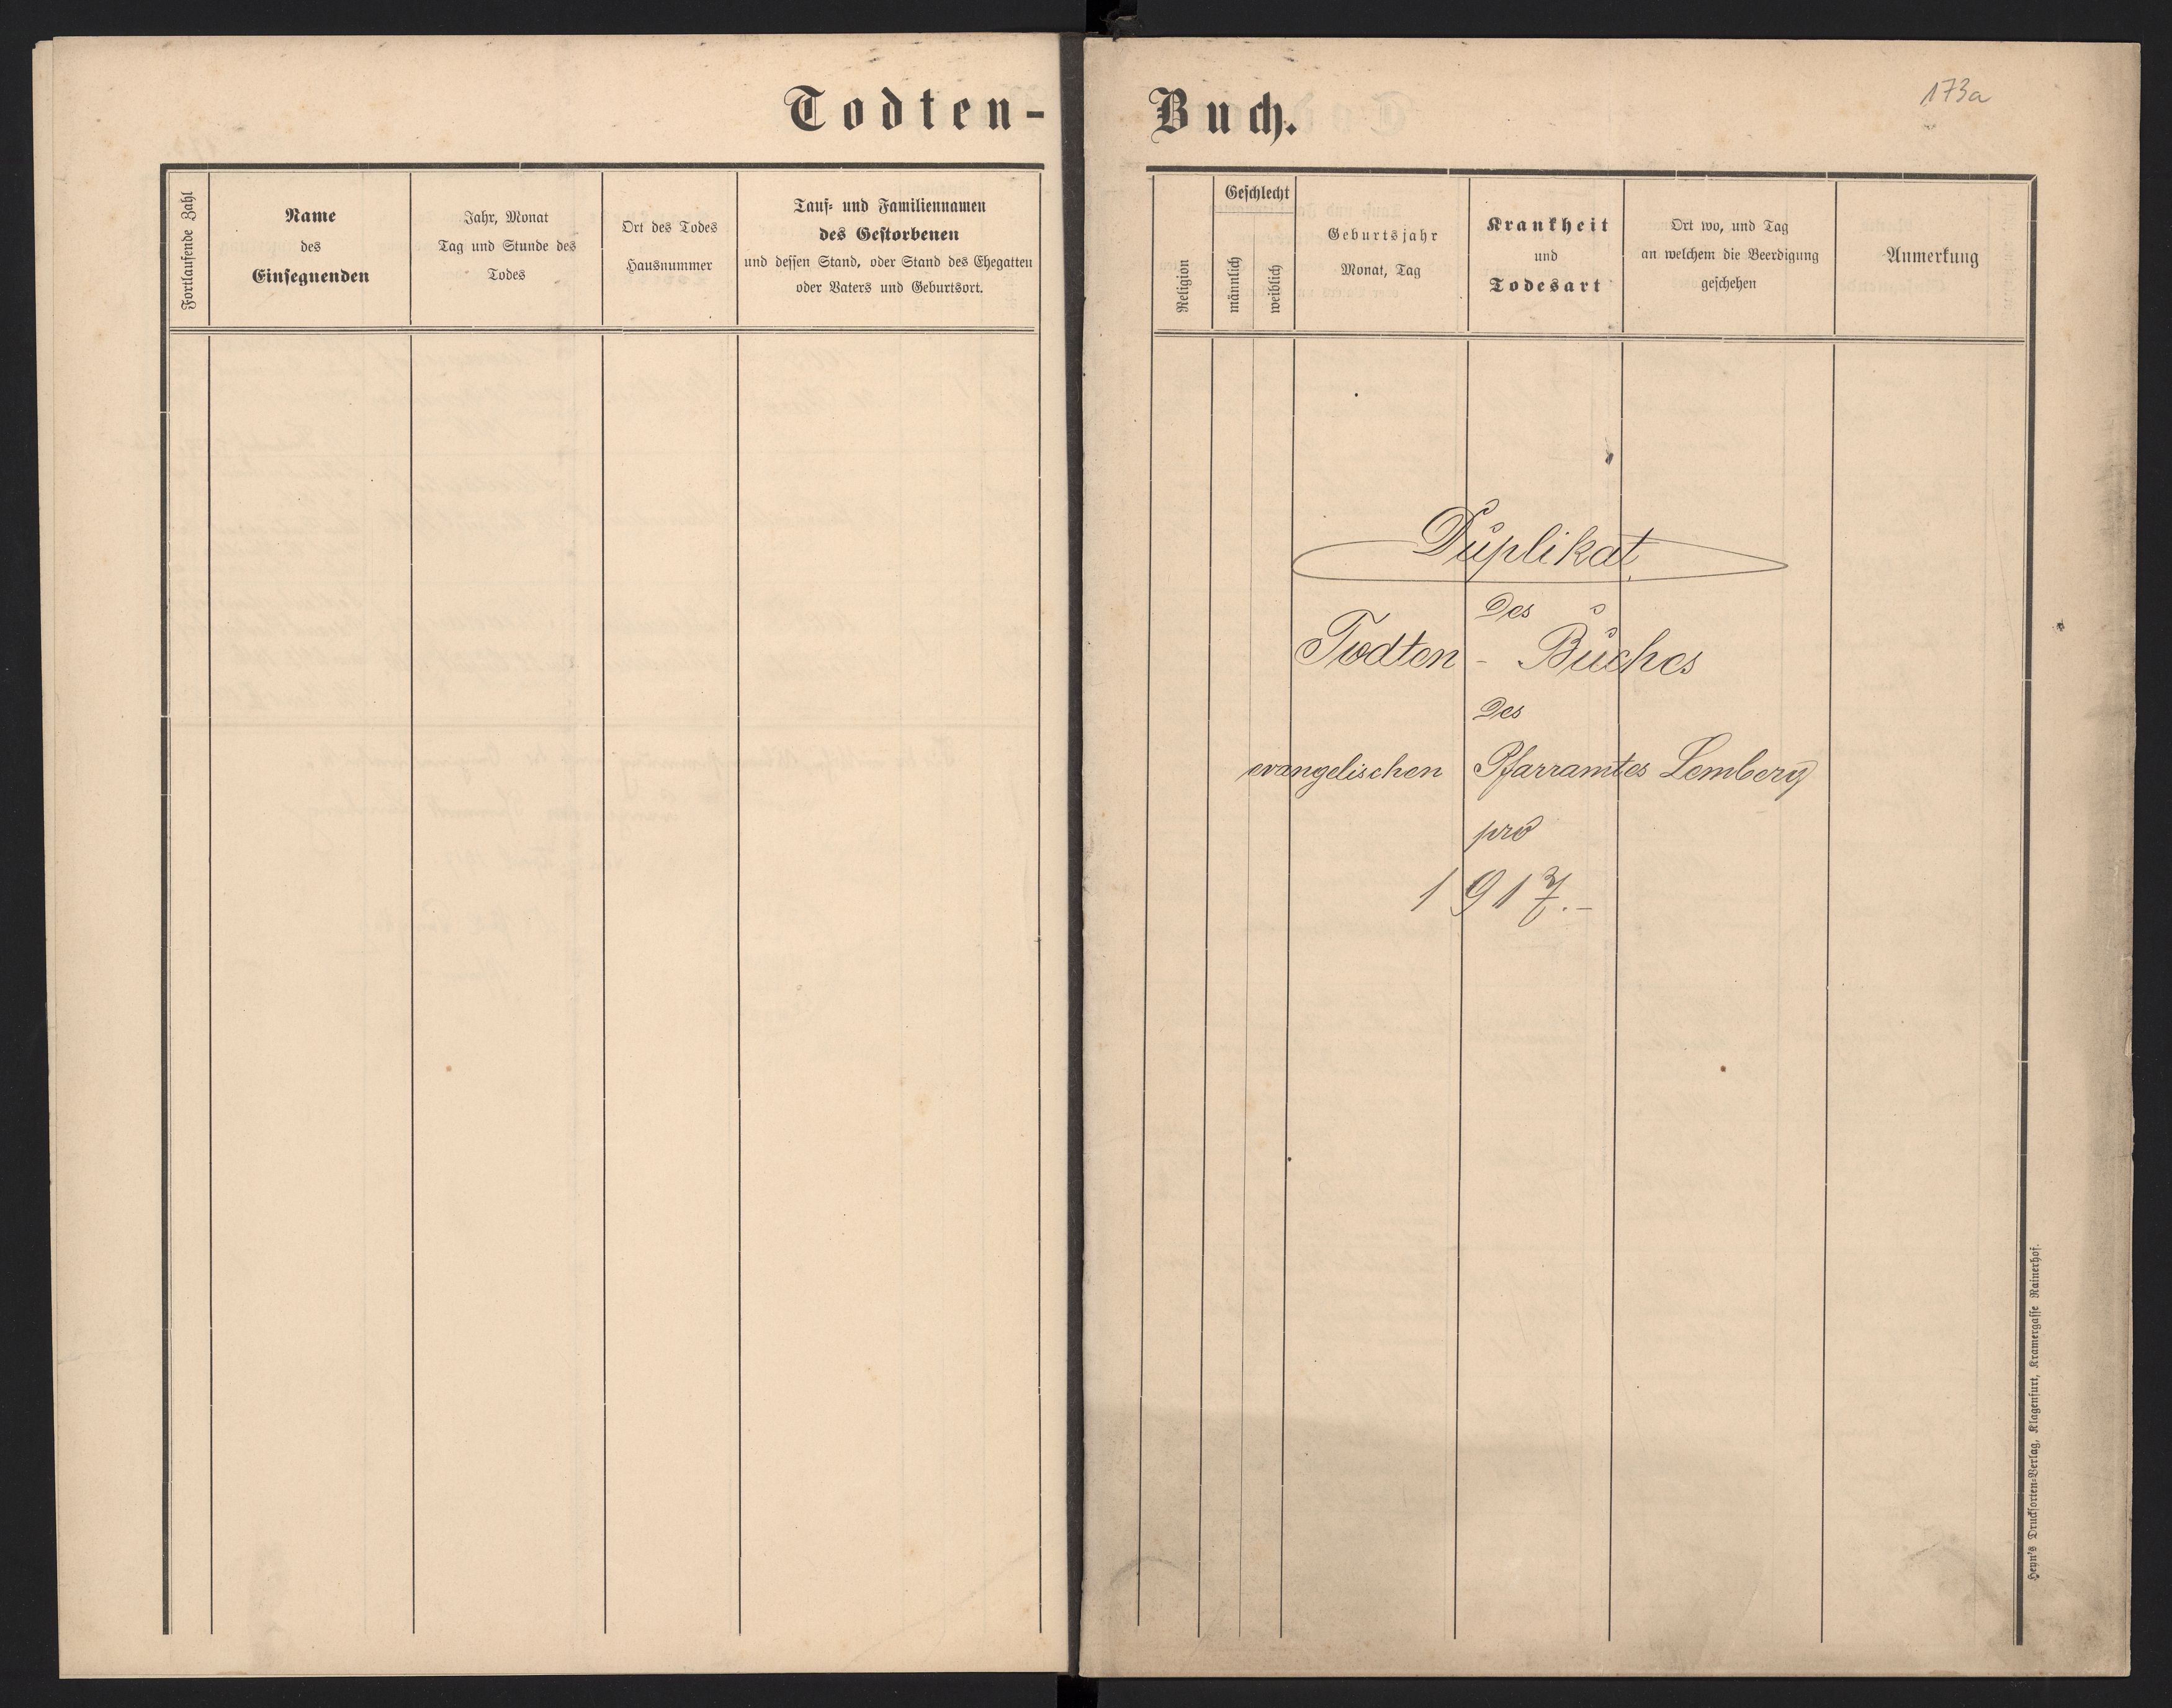 Todten-Buch.
173a
Fortlaufende Zahl
Name
des
Einsegnenden
Jahr, Monat
Tag und Stunde des
Todes
Ort des Todes
Hausnummer
Tauf- und Familiennamen
des Gestorbenen
und dessen Stand, oder Stand des Ehegatten
oder Vaters und Geburtsort.
Religion
Geschlecht
männlich
weiblich
Geburtsjahr
Monat, Tag
Krankheit
und
Todesart
Ort wo, und Tag
an welchem die Beerdigung
geschehen
Anmerkung
Duplikat
des
Todten - Buches
des
evangelischen Pfarramtes Lemberg
pro
1917.-
Heyn's Drucksorten-Verlag, Klagenfurt, Kramergasse Rainerhof.